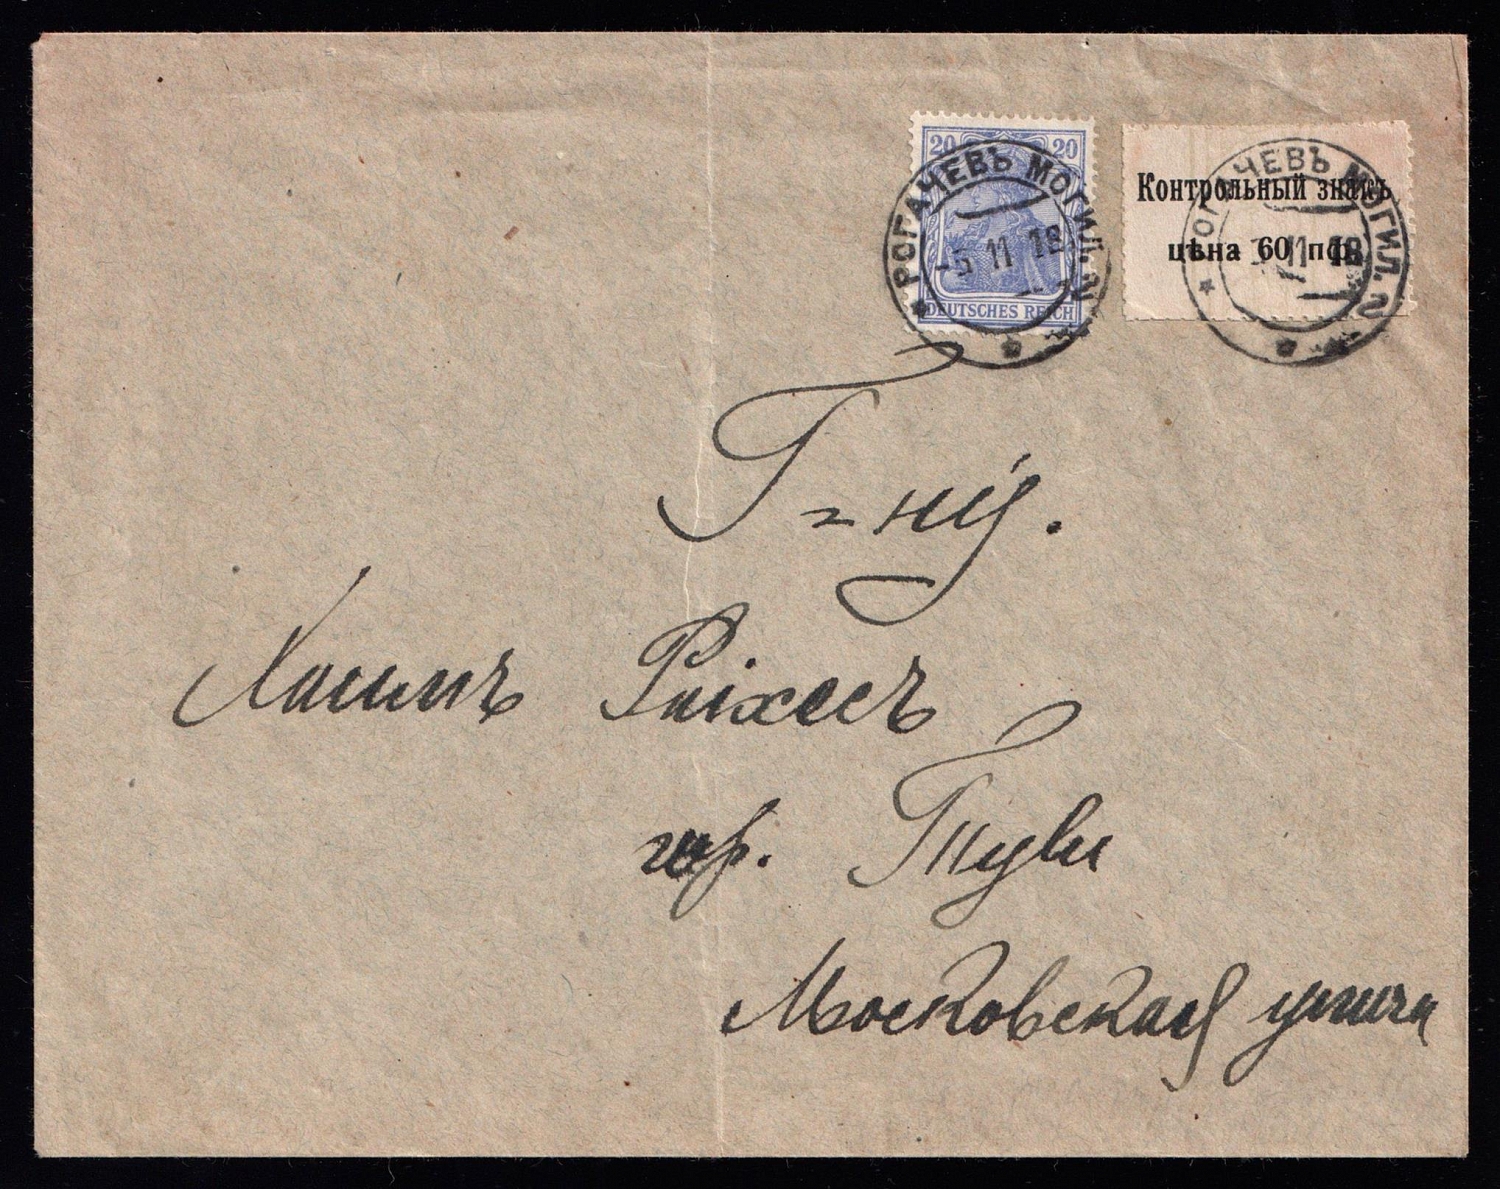 20 20
DEUTSCHES REICH
РОГАЧЕВЪ МОГИЛ.
-5 11 18
Контрольный знакъ
цѣна 60 пф.
РОГАЧЕВЪ МОГИЛ.
11 18
Г=ну.
гор.
Московская улица